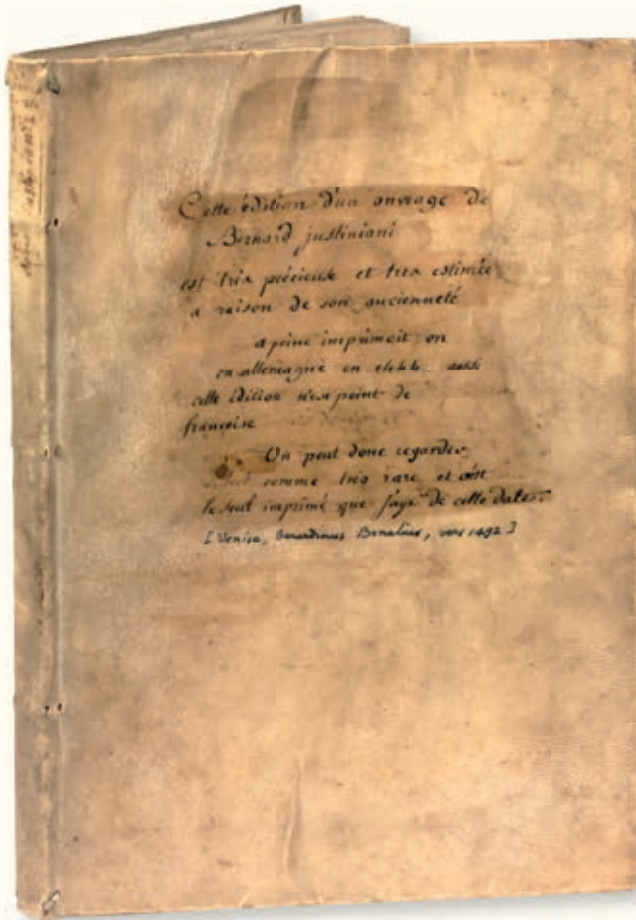 Cette édition d'un ouvrage de
Bernard justiniani
est très précieuse et très estimée
a raison de son ancienneté
a peine imprimoit on
en allemagne en aussi
cette édition n'est point de
françoise
On peut donc regarder
comme très rare et
le seul imprimé que j'aye de cette date.
[Venise, Bernardinus Benalius, vers 1492]